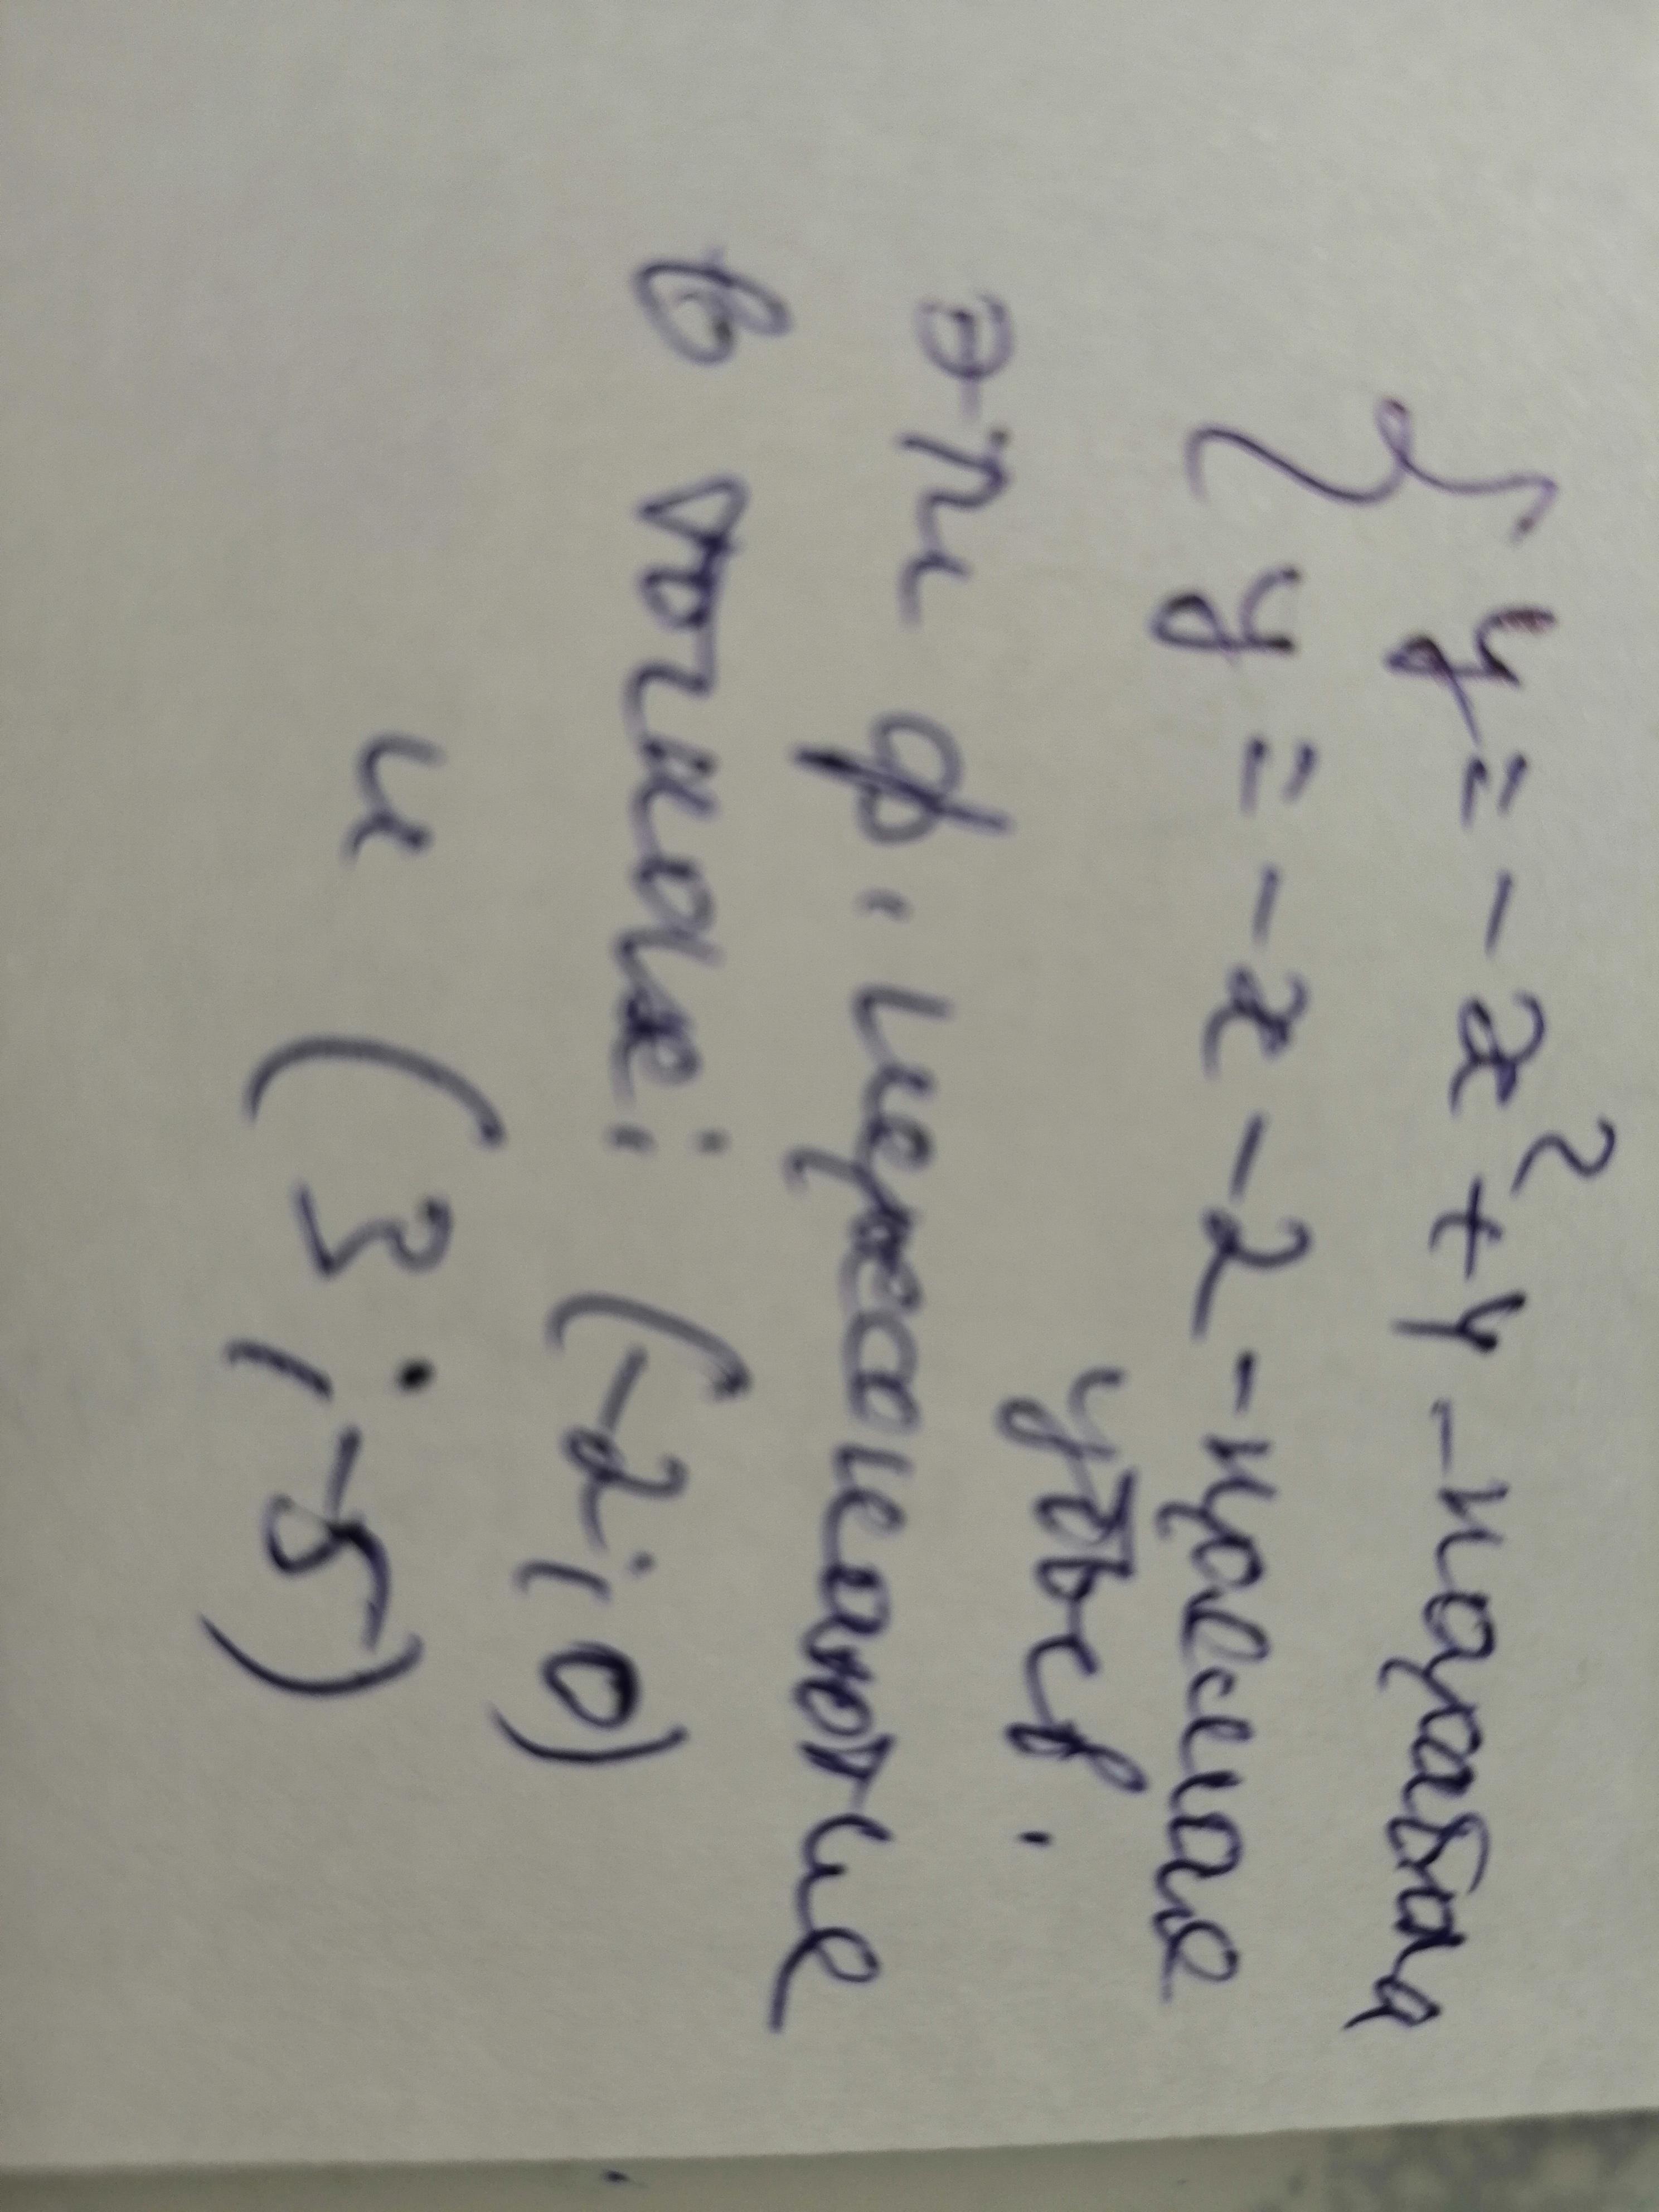 { y = - x² + 4 - парабола
y = - x - 2 - прямая
убыв.
э-ти ф. пересекаются
в точках: (-2; 0)
и (3; -5)